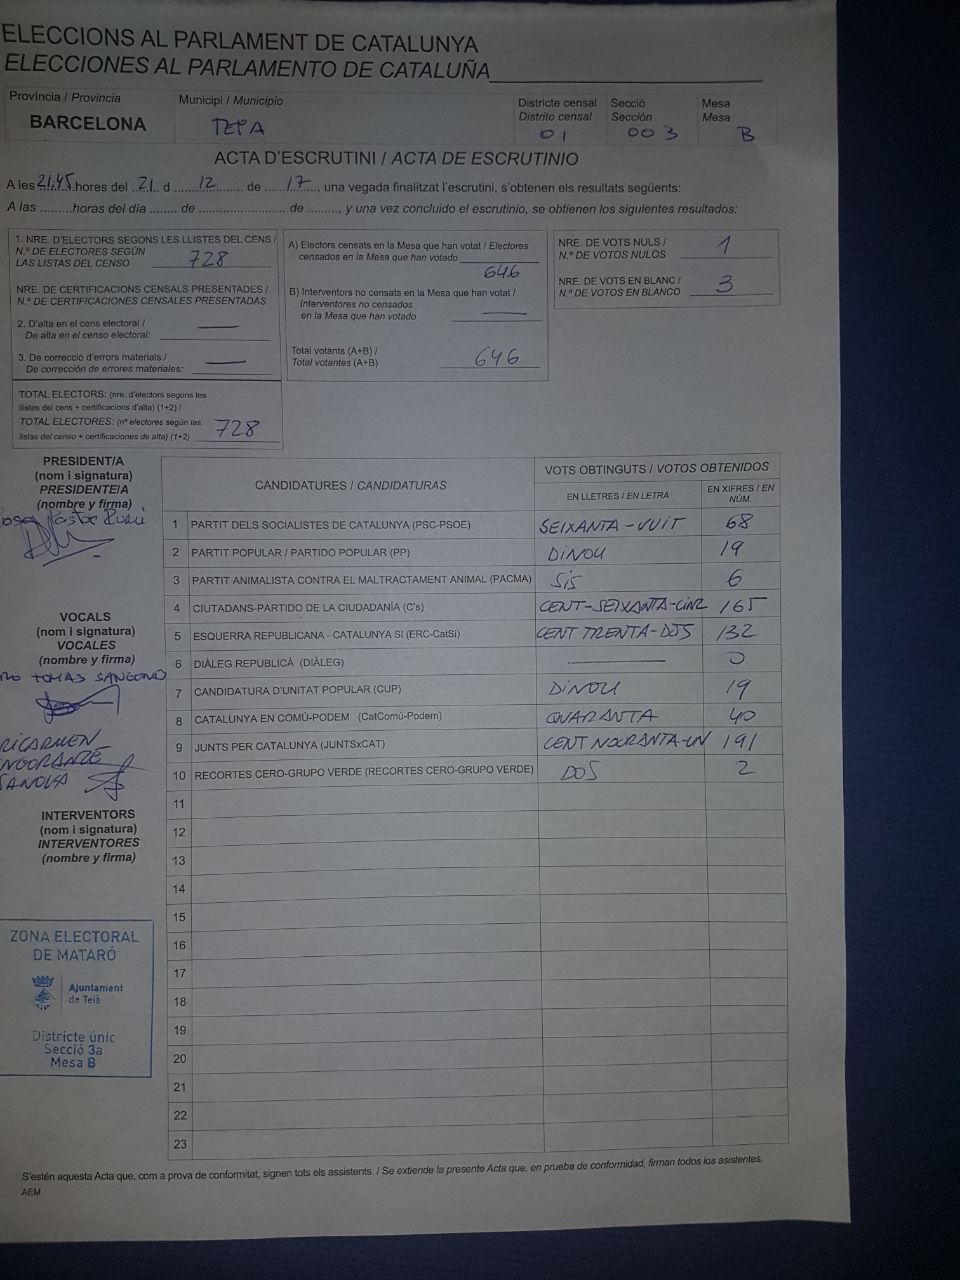 ELECCIONS AL PARLAMENT DE CATALUNYA
ELECCIONES AL PARLAMENTO DE CATALUÑA
Província / Provincia
BARCELONA
Municipi / Municipio
TEIA
Districte censal
Distrito censal
01
Secció
Sección
003
Mesa
Mesa
B
ACTA D'ESCRUTINI / ACTA DE ESCRUTINIO
A les 21,45 hores del 21 d 12 de 17, una vegada finalitzat l'escrutini, s'obtenen els resultats següents:
A las .........horas del día ........ de .......................... de ........., y una vez concluido el escrutinio, se obtienen los siguientes resultados:
1. NRE. D'ELECTORS SEGONS LES LLISTES DEL CENS /
N.º DE ELECTORES SEGÚN
LAS LISTAS DEL CENSO 728
NRE. DE CERTIFICACIONS CENSALS PRESENTADES /
N.º DE CERTIFICACIONES CENSALES PRESENTADAS
2. D'alta en el cens electoral / —
De alta en el censo electoral:
3. De correcció d'errors materials / —
De corrección de errores materiales:
TOTAL ELECTORS: (nre. d'electors segons les
llistes del cens + certificacions d'alta) (1+2) /
TOTAL ELECTORES: (nº electores según las
listas del censo + certificaciones de alta) (1+2) 728
A) Electors censats en la Mesa que han votat / Electores
censados en la Mesa que han votado
646
B) Interventors no censats en la Mesa que han votat /
Interventores no censados
en la Mesa que han votado —
Total votants (A+B) /
Total votantes (A+B) 646
NRE. DE VOTS NULS /
N.º DE VOTOS NULOS 1
NRE. DE VOTS EN BLANC /
N.º DE VOTOS EN BLANCO 3
PRESIDENT/A
(nom i signatura)
PRESIDENTE/A
(nombre y firma)
VOCALS
(nom i signatura)
VOCALES
(nombre y firma)
TOMAS
INTERVENTORS
(nom i signatura)
INTERVENTORES
(nombre y firma)
ZONA ELECTORAL
DE MATARÓ
Ajuntament
de Teià
Districte únic
Secció 3a
Mesa B
CANDIDATURES / CANDIDATURAS
VOTS OBTINGUTS / VOTOS OBTENIDOS
EN LLETRES / EN LETRA
EN XIFRES / EN
NÚM.
1 PARTIT DELS SOCIALISTES DE CATALUNYA (PSC-PSOE) SEIXANTA-VUIT 68
2 PARTIT POPULAR / PARTIDO POPULAR (PP) DINOU 19
3 PARTIT ANIMALISTA CONTRA EL MALTRACTAMENT ANIMAL (PACMA) SIS 6
4 CIUTADANS-PARTIDO DE LA CIUDADANÍA (C's) CENT-SEIXANTA-CINC 165
5 ESQUERRA REPUBLICANA - CATALUNYA SI (ERC-CatSí) CENT TRENTA-DOS 132
6 DIÀLEG REPUBLICÀ (DIÀLEG) — 0
7 CANDIDATURA D'UNITAT POPULAR (CUP) DINOU 19
8 CATALUNYA EN COMÚ-PODEM (CatComú-Podem) QUARANTA 40
9 JUNTS PER CATALUNYA (JUNTSxCAT) CENT NOURANTA-UN 191
10 RECORTES CERO-GRUPO VERDE (RECORTES CERO-GRUPO VERDE) DOS 2
11
12
13
14
15
16
17
18
19
20
21
22
23
S'estén aquesta Acta que, com a prova de conformitat, signen tots els assistents. / Se extiende la presente Acta que, en prueba de conformidad, firman todos los asistentes.
AEM